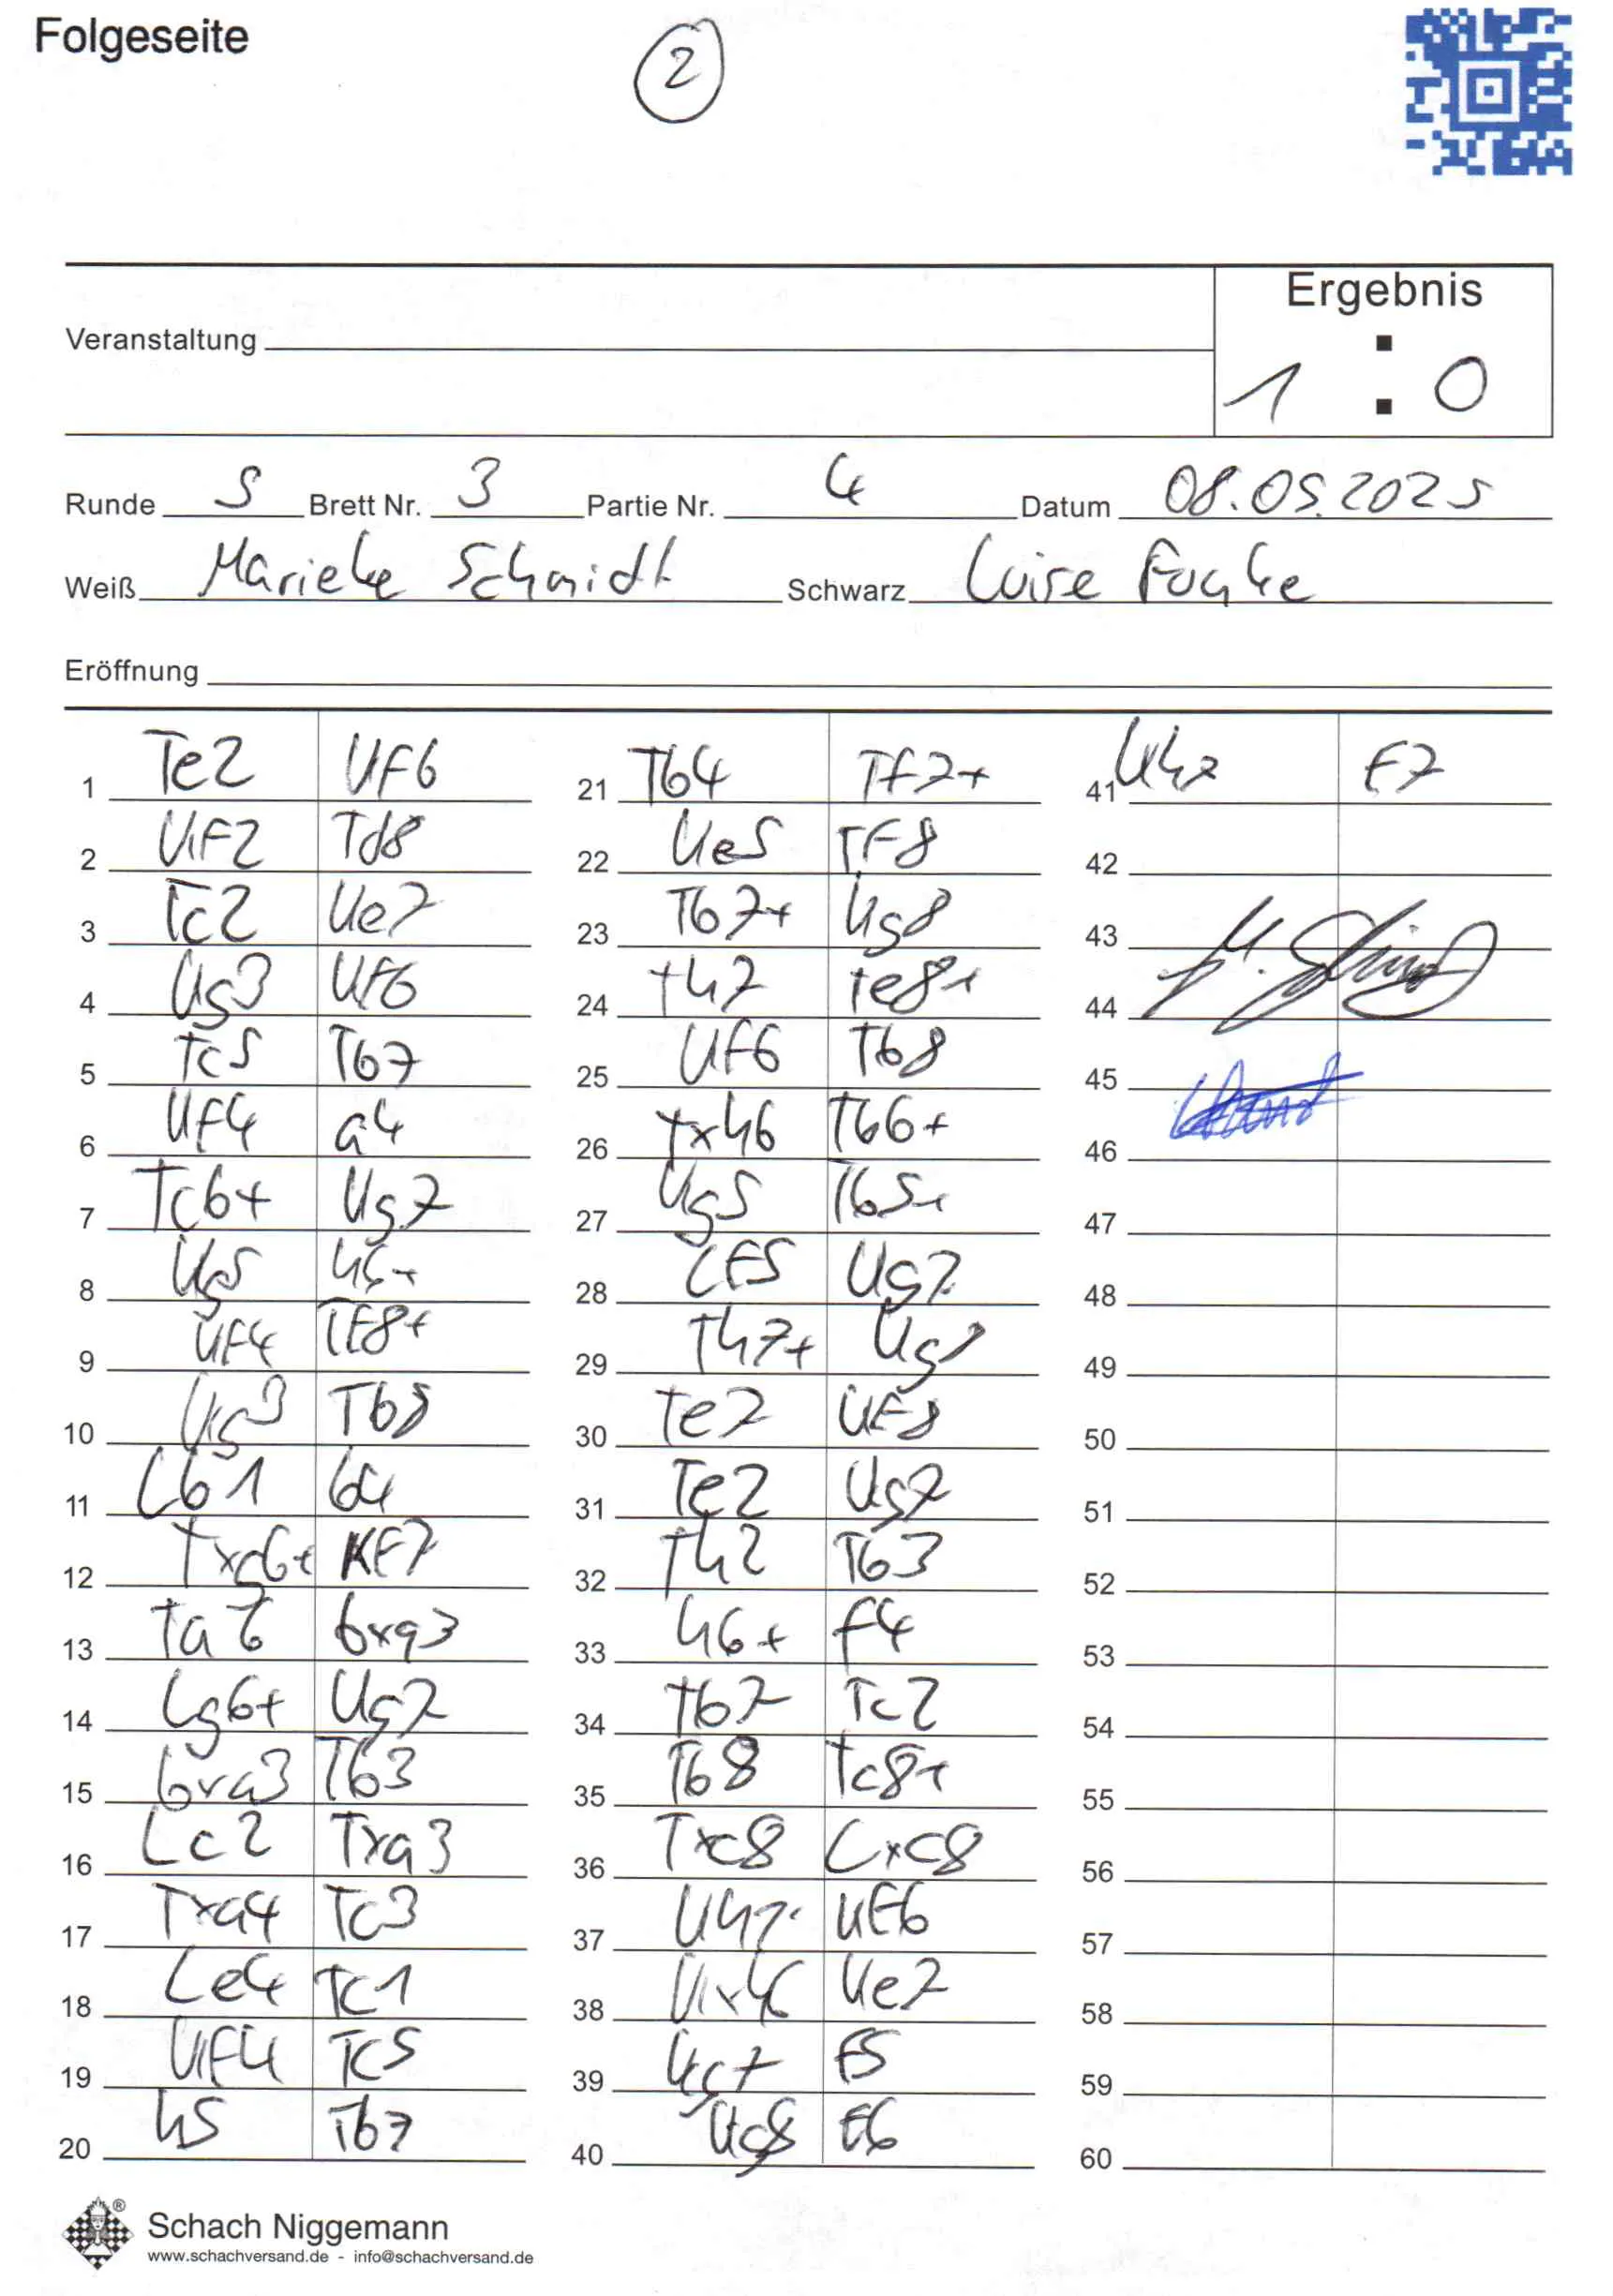 Folgeseite
2
Ergebnis
Veranstaltung
1 : 0
Runde 5 Brett Nr. 3 Partie Nr. 4 Datum 08.05.2025
Weiß Marieke Schmidt Schwarz Luise Funke
Eröffnung
1 Te2 KF6
2 KF2 Td8
3 Tc2 Ke7
4 Kg3 KF6
5 Tc5 Tb7
6 Kf4 a4
7 Tc6+ Kg7
8 Kg5 h6+
9 KF4 TF8+
10 Kg3 Tb8
11 Lb1 b4
12 Txg6+ KF7
13 Ta6 bxa3
14 Lg6+ Kg7
15 bxa3 Tb3
16 Lc2 Txa3
17 Txa4 Tc3
18 Le4 Tc1
19 KF4 Tc5
20 h5 Tb7
21 Tb4 Tf7+
22 Ke5 TF8
23 Tb7+ Kg8
24 Th7 Te8+
25 Kf6 Tb8
26 Txh6 Tb6+
27 Kg5 Tb5+
28 LF5 Kg7
29 Th7+ Kg8
30 Te7 KF8
31 Te2 Kg7
32 Th2 Tb3
33 h6+ f4
34 Tb7 Tc2
35 Tb8 Tc8+
36 Txc8 Lxc8
37 Kh7 KF6
38 Kxh6 Ke7
39 Kg7 F5
40 Kg8 F6
41 Kh7 F7
42
43
44
45
46
47
48
49
50
51
52
53
54
55
56
57
58
59
60
Schach Niggemann
www.schachversand.de - info@schachversand.de